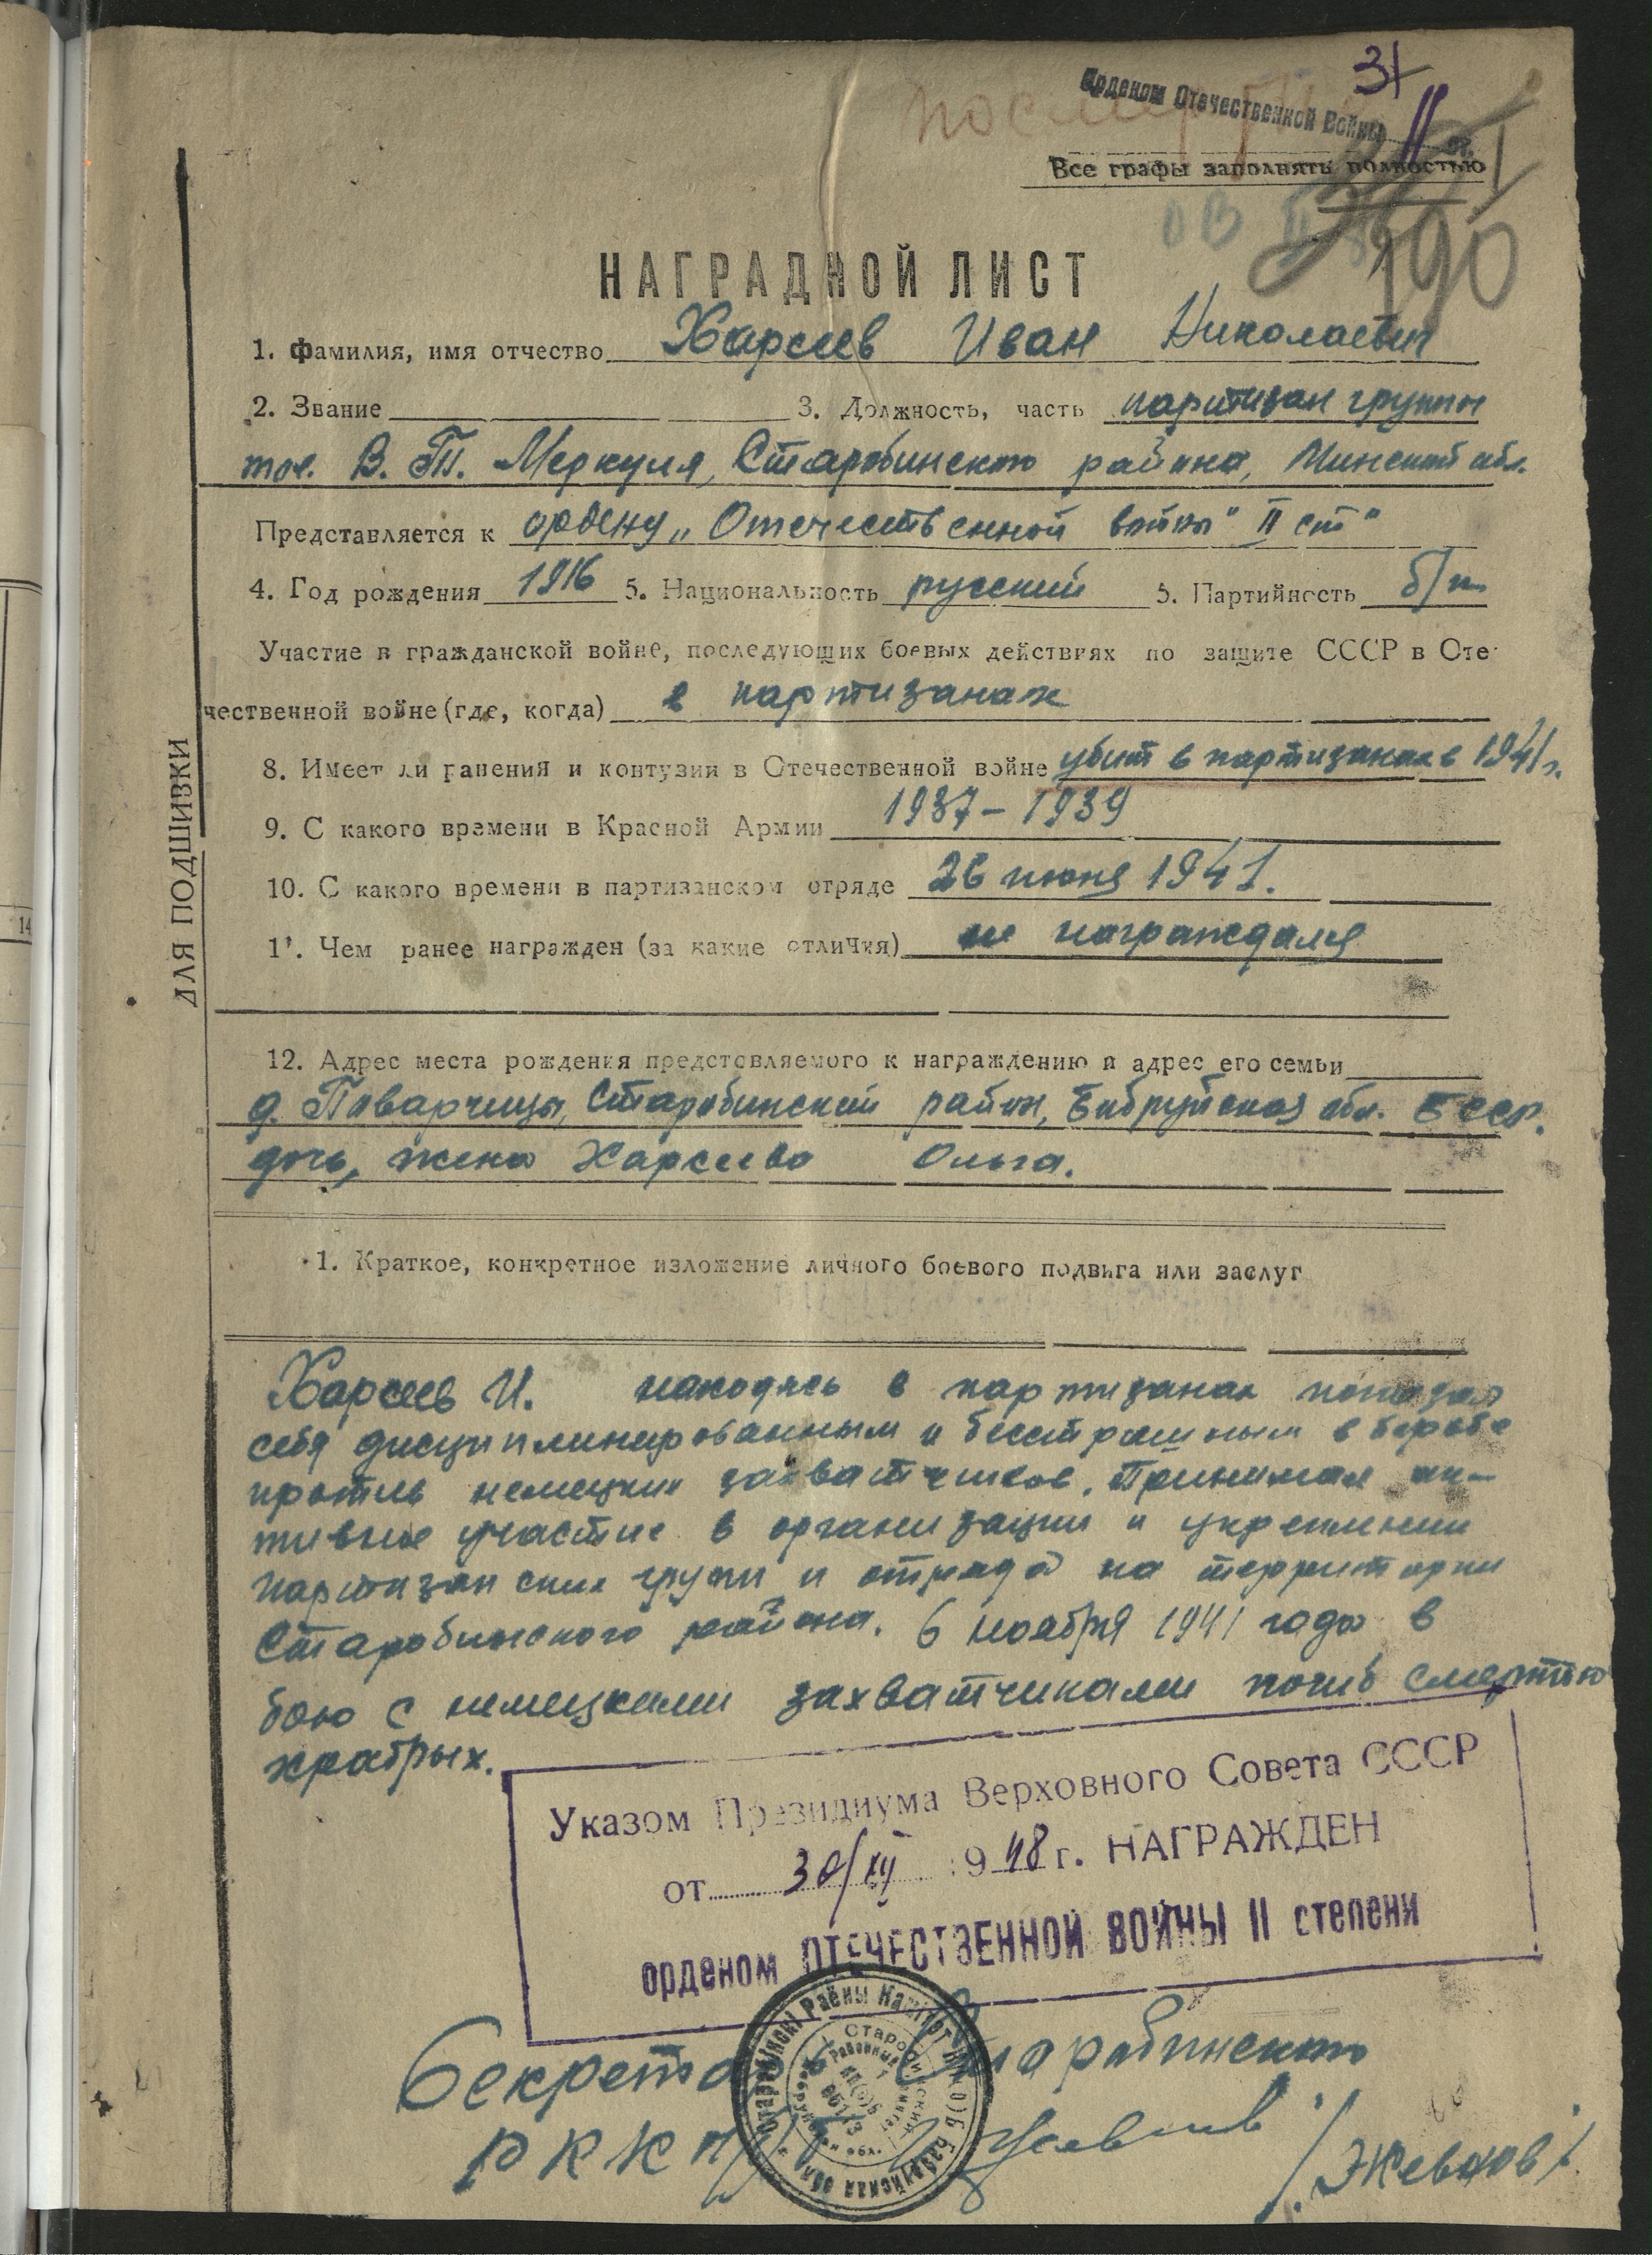 31
посмер
Орденом Отечественной Войны II ст.
Все графы заполнять полностью
ОВ II
190
НАГРАДНОЙ ЛИСТ
1. Фамилия, имя отчество Харсеев Иван Николаевич
2. Звание 3. Должность, часть партизан группы
тов. В. Т. Меркуля, Старобинского района, Минской обл.
Представляется к ордену „Отечественной войны" II ст"
4. Год рождения 1916 5. Национальность русский 5. Партийность б/п
Участие в гражданской войне, последующих боевых действиях по защите СССР в Оте-
чественной войне (где, когда) в партизанах
8. Имеет ли ранения и контузии в Отечественной войне убит в партизанах в 1941 г.
9. С какого времени в Красной Армии 1937–1939
10. С какого времени в партизанском отряде 26 июня 1941.
11. Чем ранее награжден (за какие отличия) не награждался
12. Адрес места рождения представляемого к награждению и адрес его семьи
д. Поварчицы, Старобинский район, Бобруйская обл. БССР.
дочь, жена Харсеева Ольга.
ДЛЯ ПОДШИВКИ
1. Краткое, конкретное изложение личного боевого подвига или заслуг
Харсеев И. находясь в партизанах показал
себя дисциплинированным и бесстрашным в борьбе
против немецких захватчиков. Принимал ак-
тивное участие в организации и укреплении
партизанских групп и отряда на территории
Старобинского района. 6 ноября 1941 года в
бою с немецкими захватчиками погиб смертью
храбрых.
Указом Президиума Верховного Совета СССР
от 30/XII 1948 г. НАГРАЖДЕН
орденом ОТЕЧЕСТВЕННОЙ ВОЙНЫ II степени
Секретарь Старобинского
РК КП(б)Б /Жевнов/